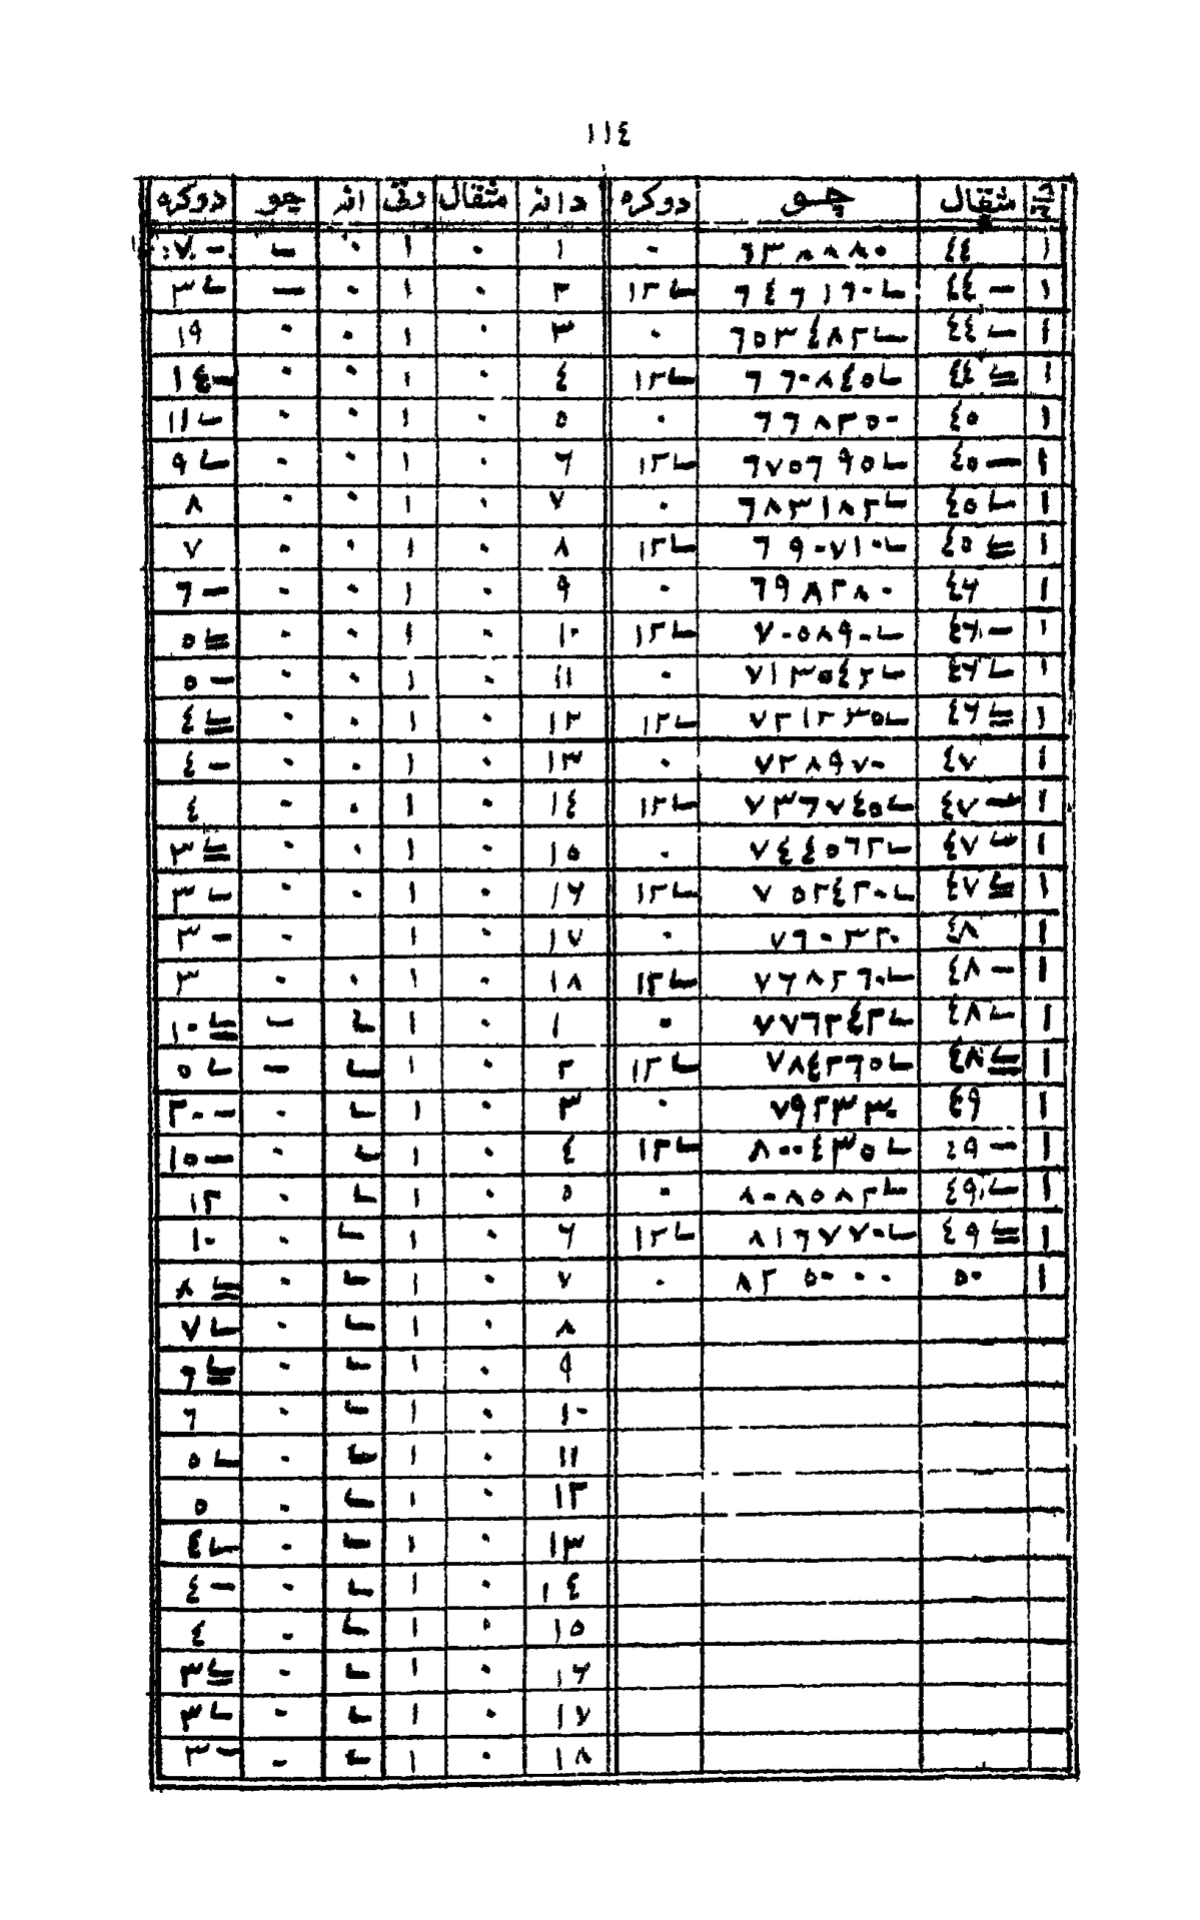 ١١٤
مثقال چو دوكره دانه مثقال رتی انه چو دوكره
١ ٤٤ ٦٣٨٨٨٠ ٠ ١ ٠ ١ ٠
١ ٤٤ ٦٤٦١٦٠ ١٢ ٢ ٠ ١ ٠ ٣
١ ٤٤ ٦٥٣٤٨٢ ٠ ٣ ٠ ١ ٠ ٠ ١٩
١ ٤٤ ٦٦٠٨٤٥ ١٢ ٤ ٠ ١ ٠ ٠ ١٤
١ ٤٥ ٦٦٨٢٥٠ ٠ ٥ ٠ ١ ٠ ٠ ١١
١ ٤٥ ٦٧٥٦٩٥ ١٢ ٦ ٠ ١ ٠ ٠ ٩
١ ٤٥ ٦٨٣١٨٢ ٠ ٧ ٠ ١ ٠ ٠ ٨
١ ٤٥ ٦٩٠٧١٠ ١٢ ٨ ٠ ١ ٠ ٠ ٧
١ ٤٦ ٦٩٨٢٨٠ ٠ ٩ ٠ ١ ٠ ٠ ٦
١ ٤٦ ٧٠٥٨٩٠ ١٢ ١٠ ٠ ١ ٠ ٠ ٥
١ ٤٦ ٧١٣٥٤٢ ٠ ١١ ٠ ١ ٠ ٠ ٥
١ ٤٦ ٧٢١٢٣٥ ١٢ ١٢ ٠ ١ ٠ ٠ ٤
١ ٤٧ ٧٢٨٩٧٠ ٠ ١٣ ٠ ١ ٠ ٠ ٤
١ ٤٧ ٧٣٦٧٤٥ ١٢ ١٤ ٠ ١ ٠ ٠ ٤
١ ٤٧ ٧٤٤٥٦٢ ٠ ١٥ ٠ ١ ٠ ٠ ٣
١ ٤٧ ٧٥٢٤٢٠ ١٢ ١٦ ٠ ١ ٠ ٠ ٣
١ ٤٨ ٧٦٠٣٢٠ ٠ ١٧ ٠ ١ ٠ ٣
١ ٤٨ ٧٦٨٢٦٠ ١٢ ١٨ ٠ ١ ٠ ٠ ٣
١ ٤٨ ٧٧٦٢٤٢ ٠ ١ ٠ ١ ١٠
١ ٤٨ ٧٨٤٢٦٥ ١٢ ٢ ٠ ١ ٥
١ ٤٩ ٧٩٢٣٣٠ ٠ ٣ ٠ ١ ٠ ٢٠
١ ٤٩ ٨٠٠٤٣٥ ١٢ ٤ ٠ ١ ٠ ١٥
١ ٤٩ ٨٠٨٥٨٢ ٠ ٥ ٠ ١ ٠ ١٢
١ ٤٩ ٨١٦٧٧٠ ١٢ ٦ ٠ ١ ٠ ١٠
١ ٥٠ ٨٢٥٠٠٠٠ ٠ ٧ ٠ ١ ٠ ٨
٨ ٠ ١ ٠ ٧
٩ ٠ ١ ٠ ٦
١٠ ٠ ١ ٠ ٦
١١ ٠ ١ ٠ ٥
١٢ ٠ ١ ٠ ٥
١٣ ٠ ١ ٠ ٤
١٤ ٠ ١ ٠ ٤
١٥ ٠ ١ ٠ ٤
١٦ ٠ ١ ٠ ٣
١٧ ٠ ١ ٠ ٣
١٨ ٠ ١ ٠ ٣